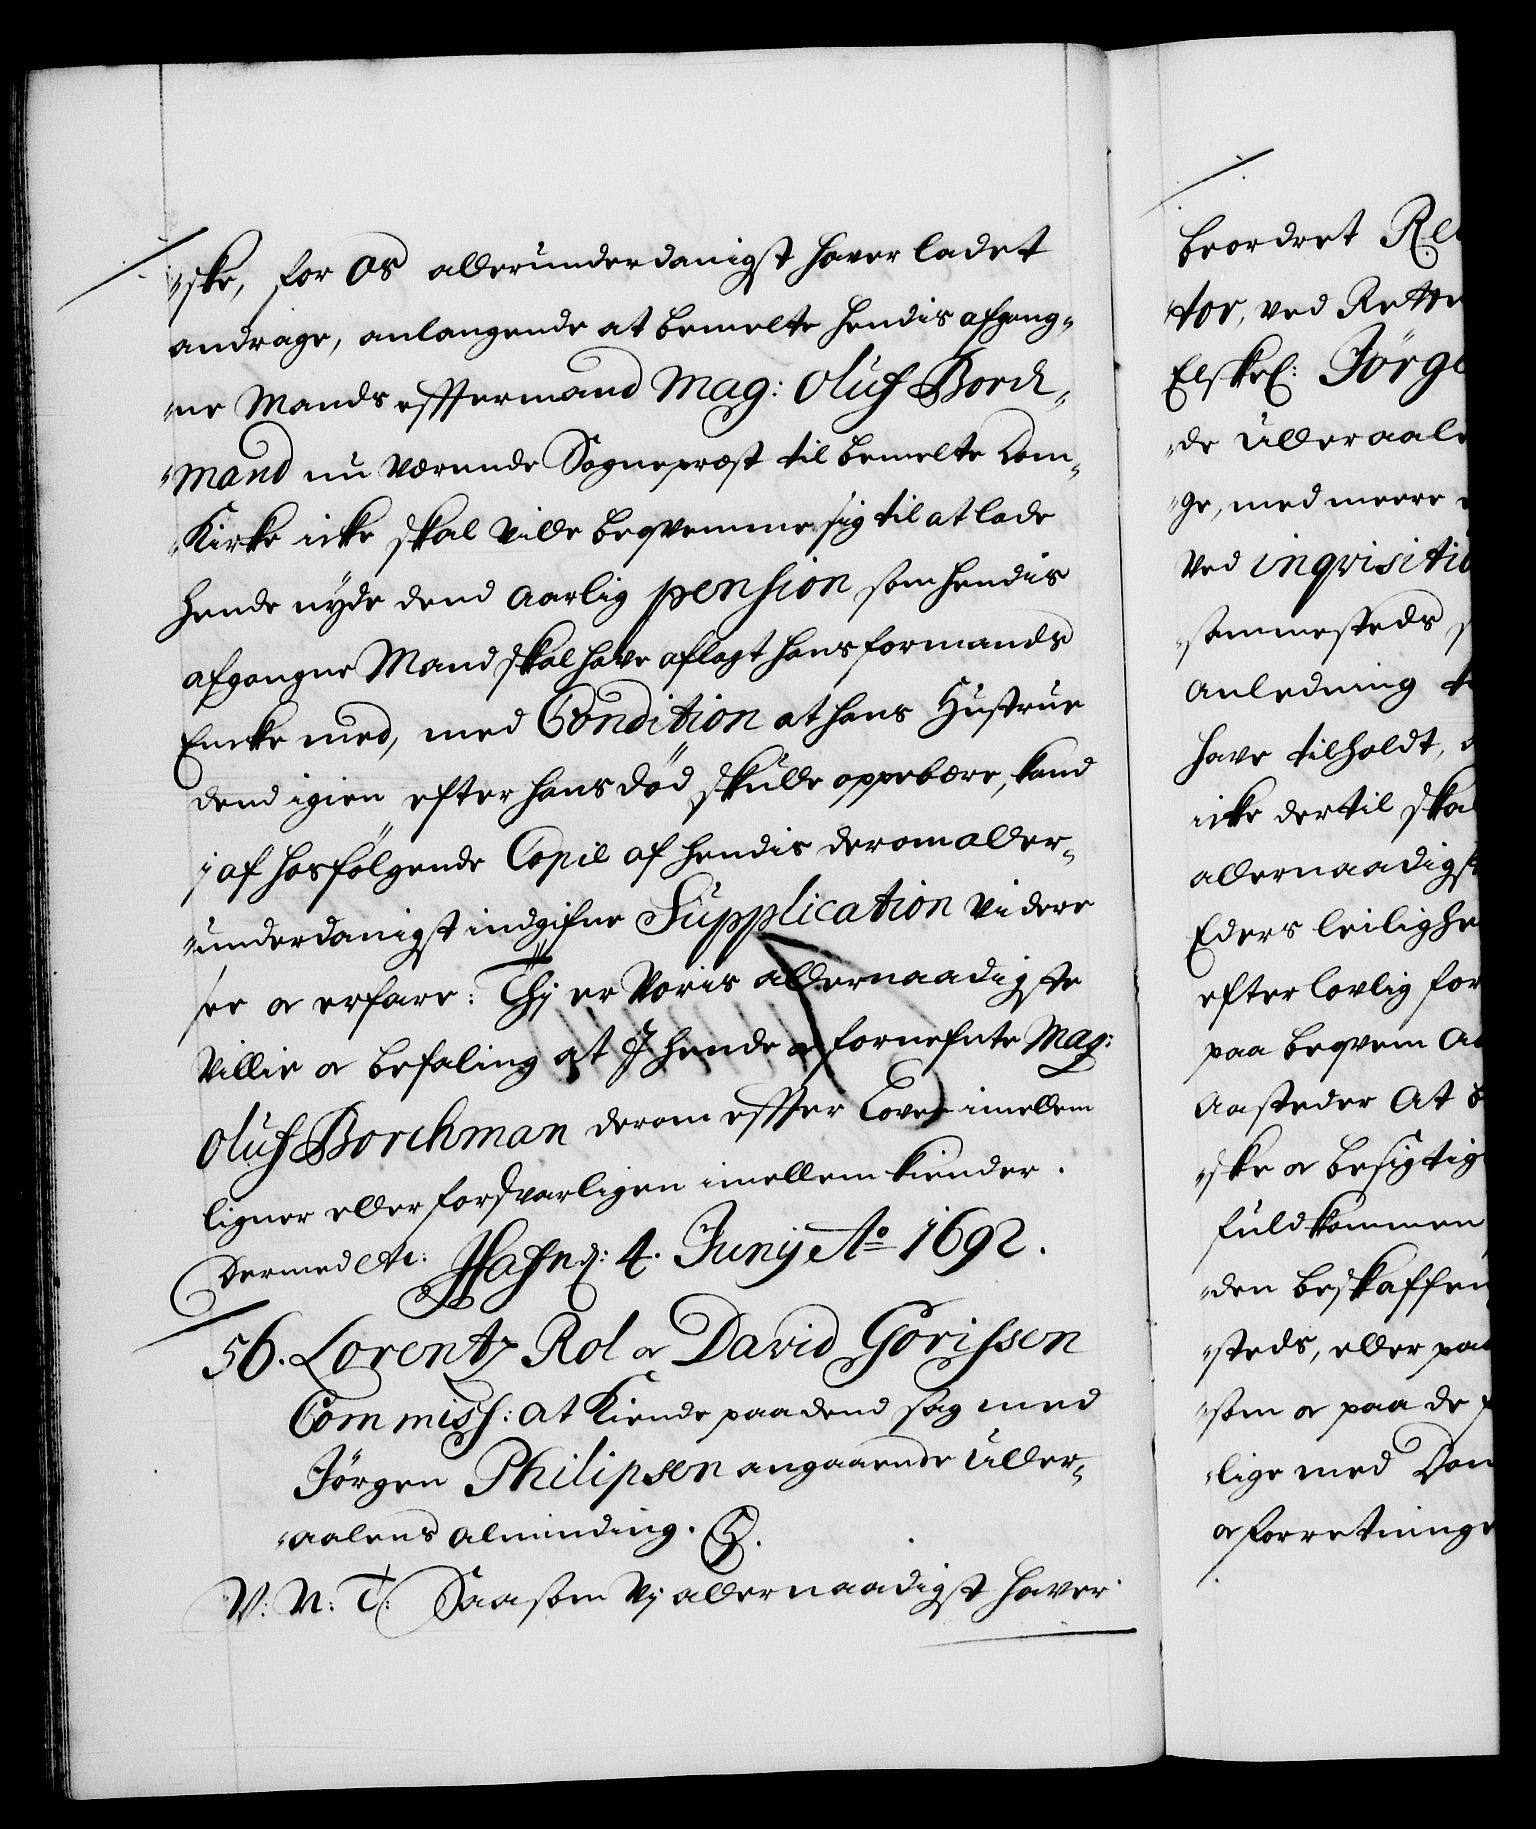 "ske, for os allerunderdanigst haver ladet
andrage, anlangende at bemelte hendis afgang„
"ne Mands effterMand Mag: Oluf Borch„
"mand nu værende Sognepræst til bemelte Dom„
"Kirke icke skal ville beqvemme sig til at lade
hende nyde dend aarlig pension som hendis
afgangne Mand skal have aflagt hans formands
Encke med, med Condition at hans Hustrue
dend igien efter hans död skulle oppebære, kand
j af hosfölgende Copie af hendis derom aller„
"underdanigst indgifne Supplication videre
see og erfare: Thj er Voris allernaadigste
Villie og befaling at I hende og fornefnte Mag:
Oluf Borchman derom effter Loven imellem
ligner eller forsvarligen imellem kiender.
Dermed etc: Hafnæ: 4. Junij Ao 1692.
56. Lorentz Rol og David Görissen
Commiss: at Kiende paa dend sag med
Jörgen Philipsen angaaende Uller„
"aalens alminding. S.
V: N: T: Saasom Vj allernaadigst haver
beordret
tor, ved
Elskel:
"de Ulleraale
"ge, med meere
ved inqvisitio
"sammesteds
anledning
have tilholdt,
icke dertil skal
allernaadigst
Eders leilighe
efter lovlig for
paa beqvem
Aasteder At
"ske og besigtig
fuldkommen
"den beskaffen
"steds, eller paa
"som og paa de
"lige med Dom
og forretninge